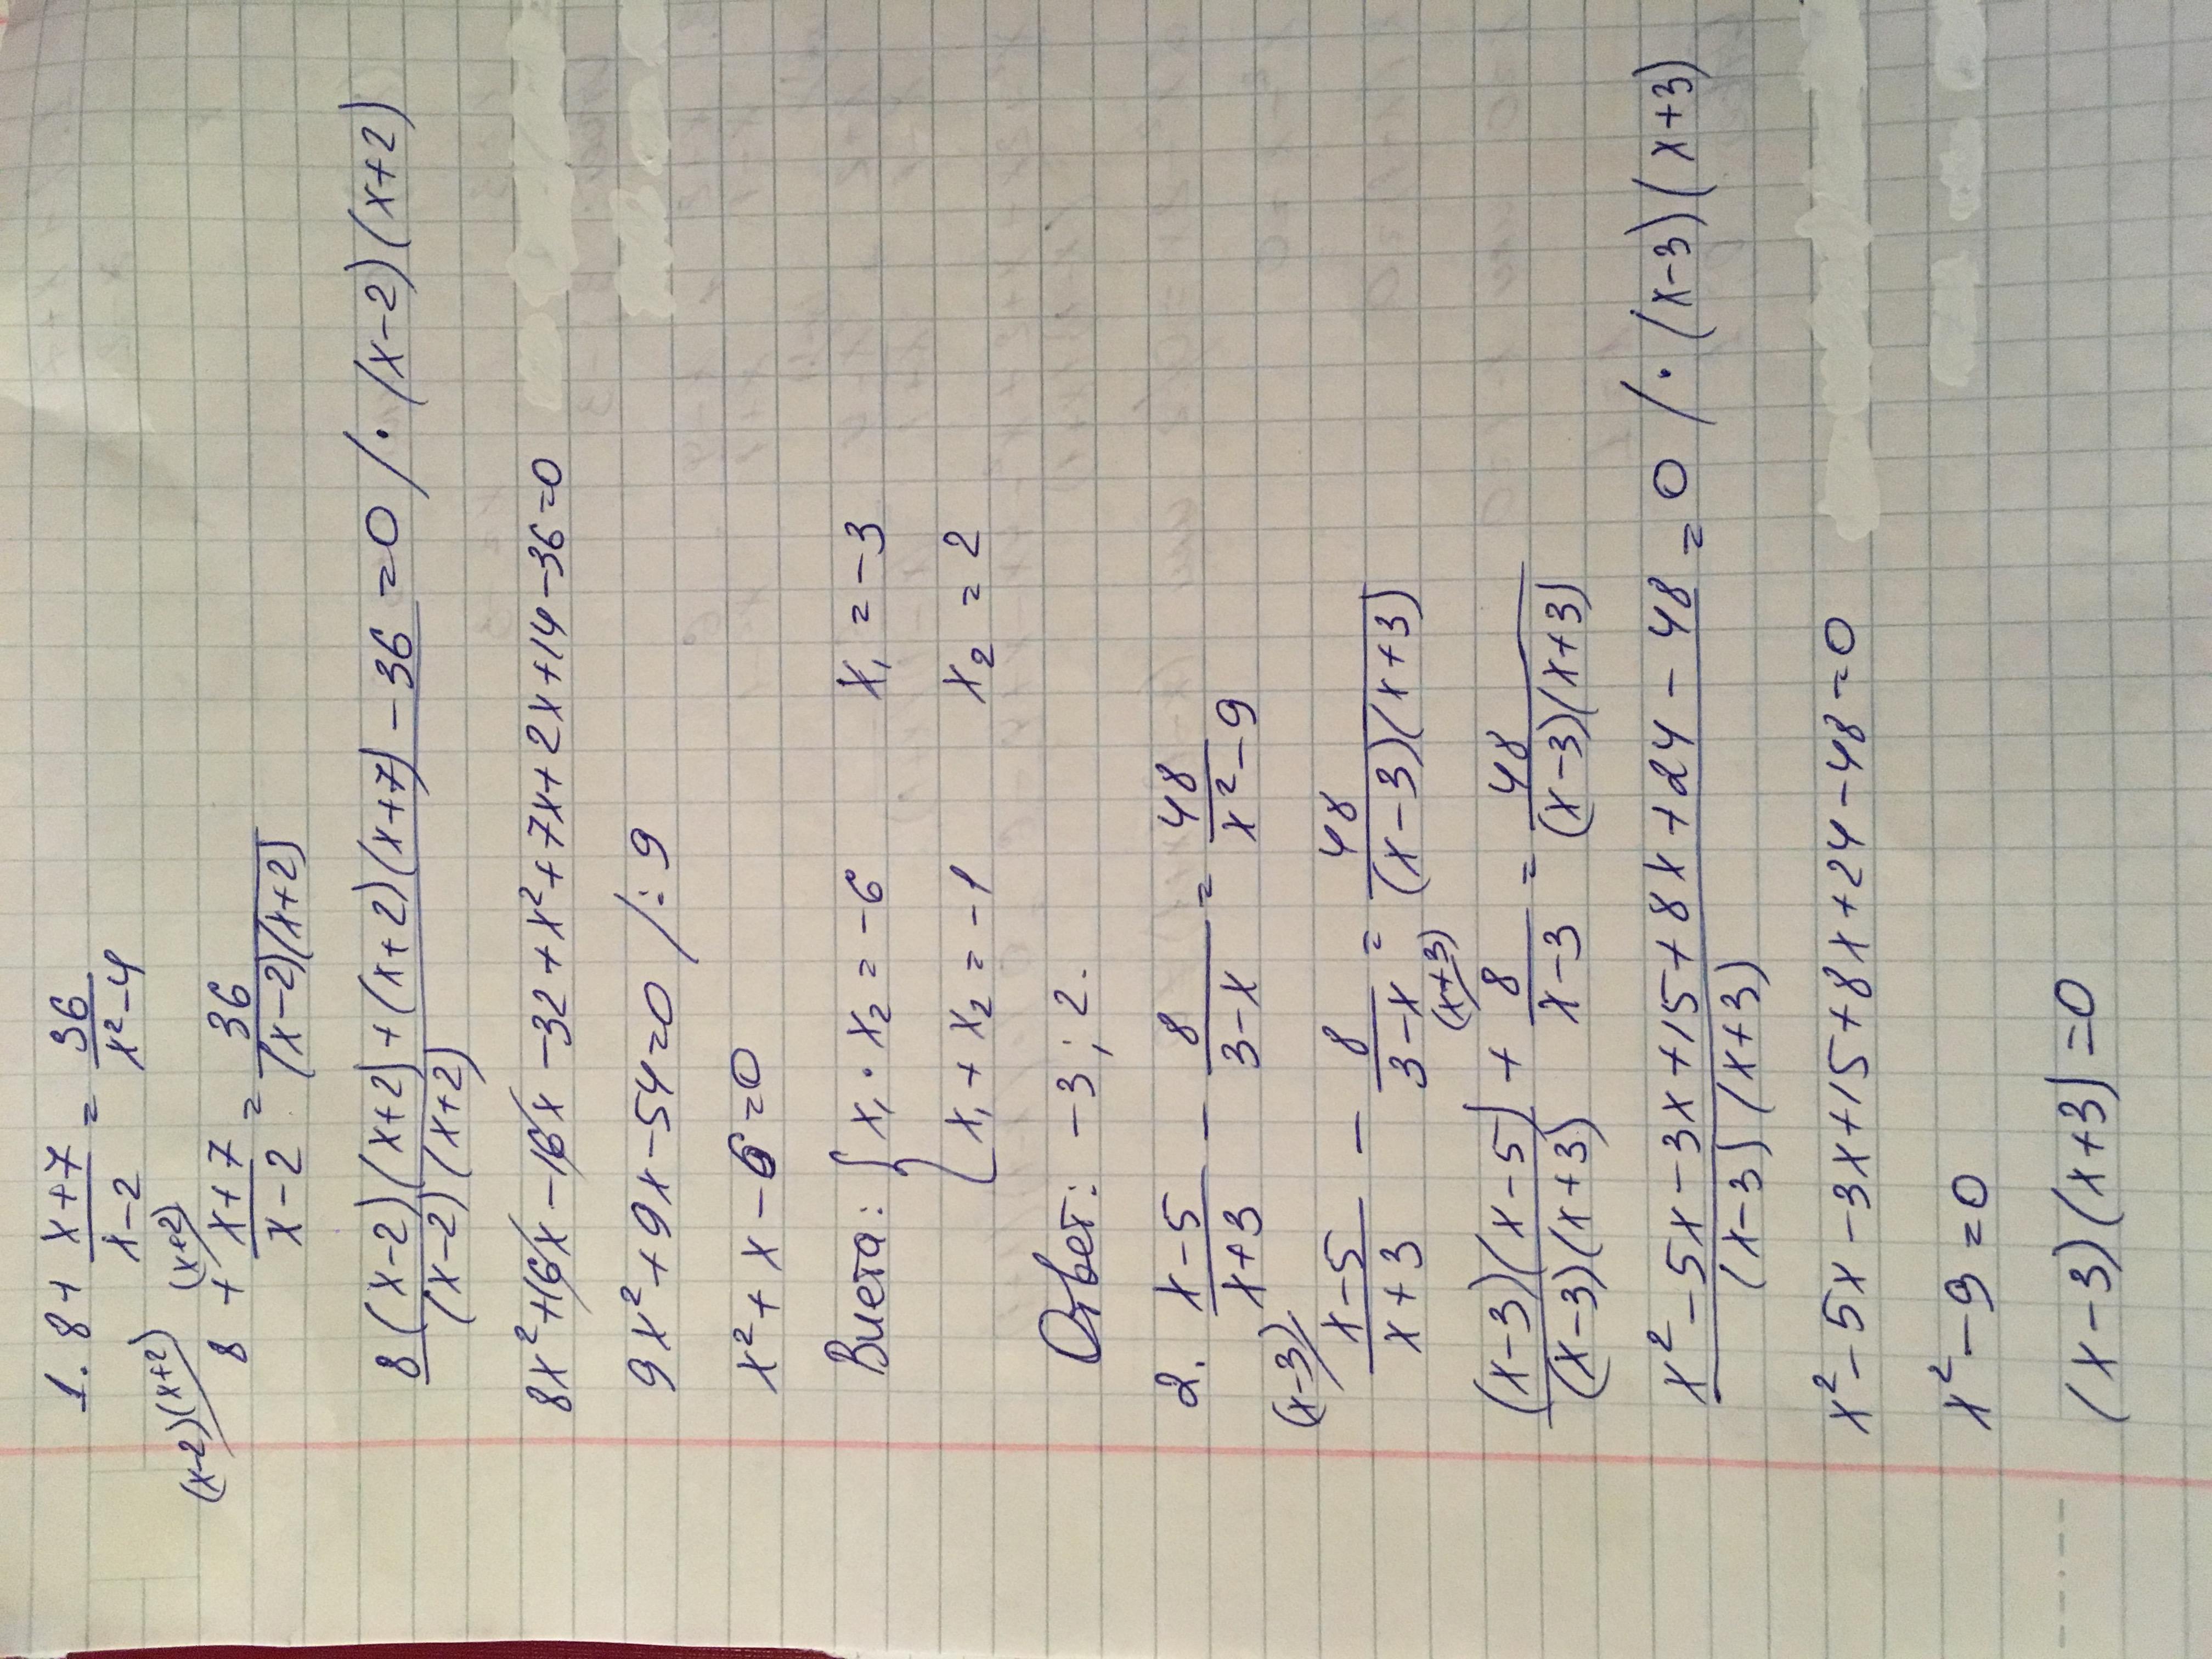 1. 8 + (x+7)/(x-2) = 36/(x²-4)
(x-2)(x+2)/ 8 + (x+2)/ (x+7)/(x-2) = 36/((x-2)(x+2))
(8(x-2)(x+2) + (x+2)(x+7) - 36)/((x-2)(x+2)) = 0 /·(x-2)(x+2)
8x² + 16x - 16x - 32 + x² + 7x + 2x + 14 - 36 = 0
9x² + 9x - 54 = 0 /: 9
x² + x - 6 = 0
Виета: { x₁ · x₂ = -6 x₁ = -3
x₁ + x₂ = -1 x₂ = 2
Ответ: -3; 2.
2. (x-5)/(x+3) - 8/(3-x) = 48/(x²-9)
(x-3)/ (x-5)/(x+3) - 8/(3-x) (x+3)/ = 48/((x-3)(x+3))
((x-3)(x-5))/((x-3)(x+3)) + 8/(x-3) = 48/((x-3)(x+3))
(x² - 5x - 3x + 15 + 8x + 24 - 48)/((x-3)(x+3)) = 0 /·(x-3)(x+3)
x² - 5x - 3x + 15 + 8x + 24 - 48 = 0
x² - 9 = 0
(x-3)(x+3) = 0